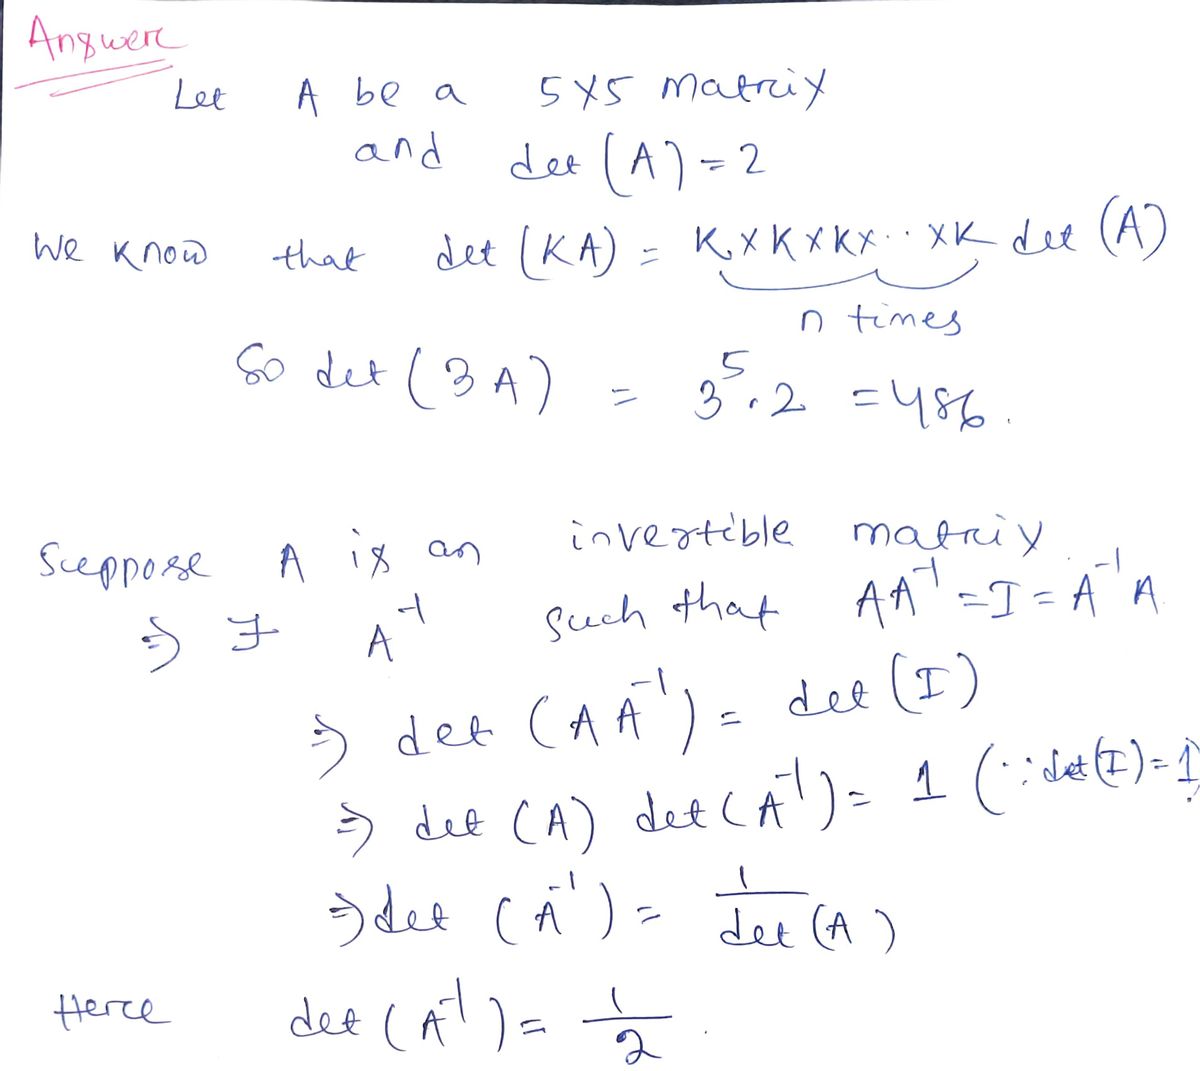 Answer
Let A be a 5×5 matrix
and det (A) = 2
We know that det (KA) = K×K×K×..×K det (A)
n times
So det (3A) = 3^5 . 2 = 486.
Suppose A is an invertible matrix.
⇒ ∃ A^-1 such that AA^-1 = I = A^-1 A
⇒ det (AA^-1) = det (I)
⇒ det (A) det (A^-1) = 1 (∵ det(I) = 1)
⇒ det (A^-1) = 1/det (A)
Here det (A^-1) = 1/2.